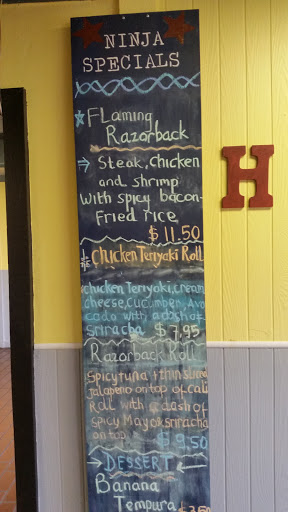 NINJA
SPECIALS
FLaming
Razorback
Steak, chicken
and shrimp
with spicy bacon-
Fried rice
$ 11.50
chicken Teriyaki Roll
chicken Teriyaki, cream
cheese, cucumber, Avo
cado with a dash of
sriracha $ 7.95
Razorback Roll
Spicy tuna + thin sliced
Jalapeno on top of cali
Roll with a dash of
spicy Mayo & sriracha
on top. $ 9.50
DESSERT
Banana
Tempura
H